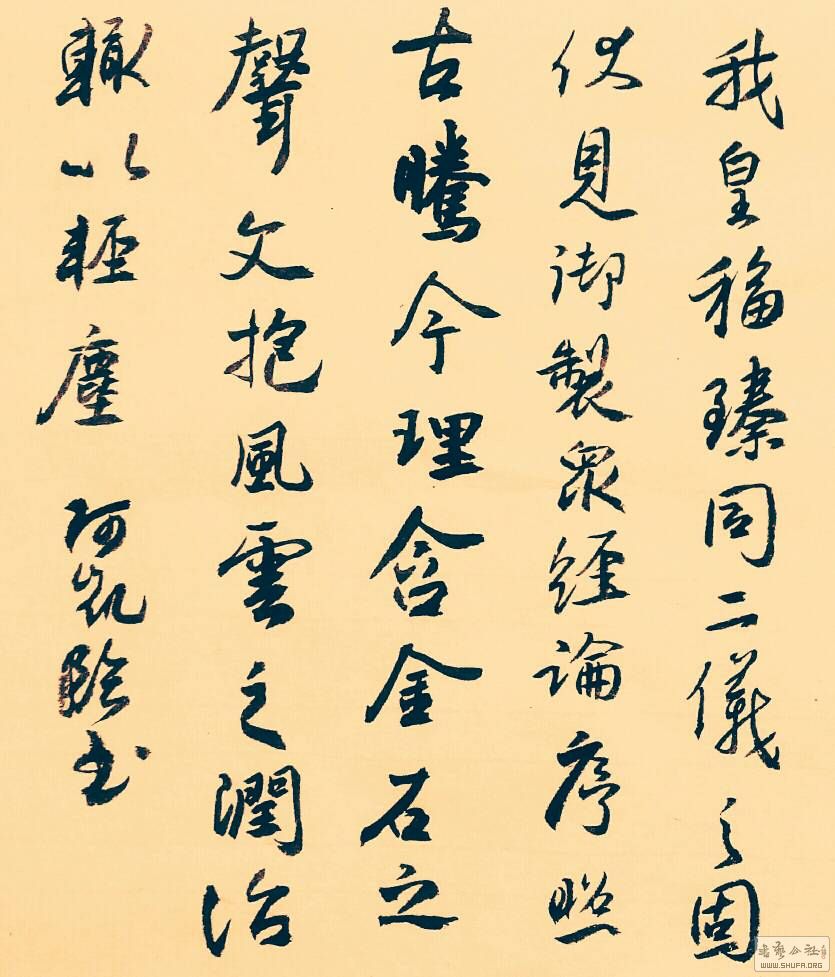 我皇福臻同二儀之固
伏見御製眾經論序照
古騰今理含金石之
聲文抱風雲之潤治
輙以輕塵
阿凯臨书
书艺公社
WWW.SHUFA.ORG